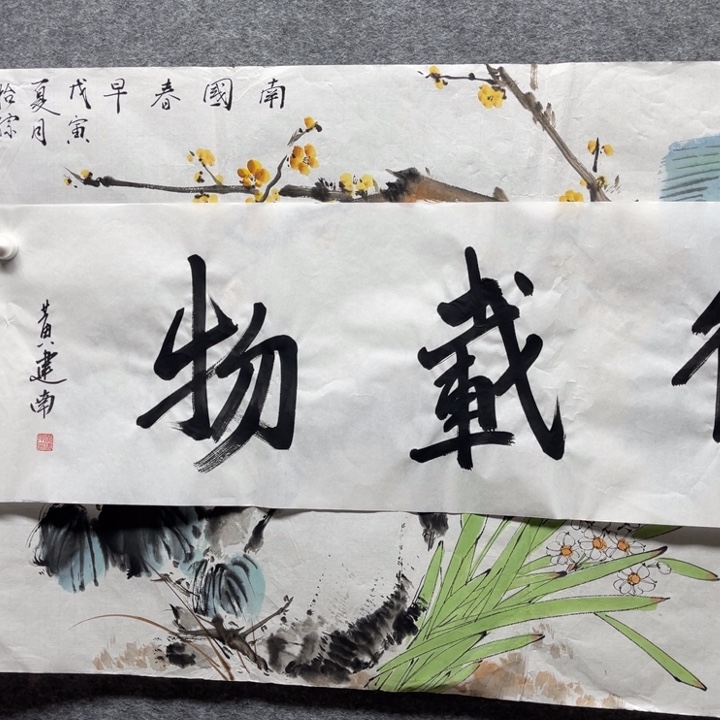 南國春早
戊寅
夏月
載物
黃建南